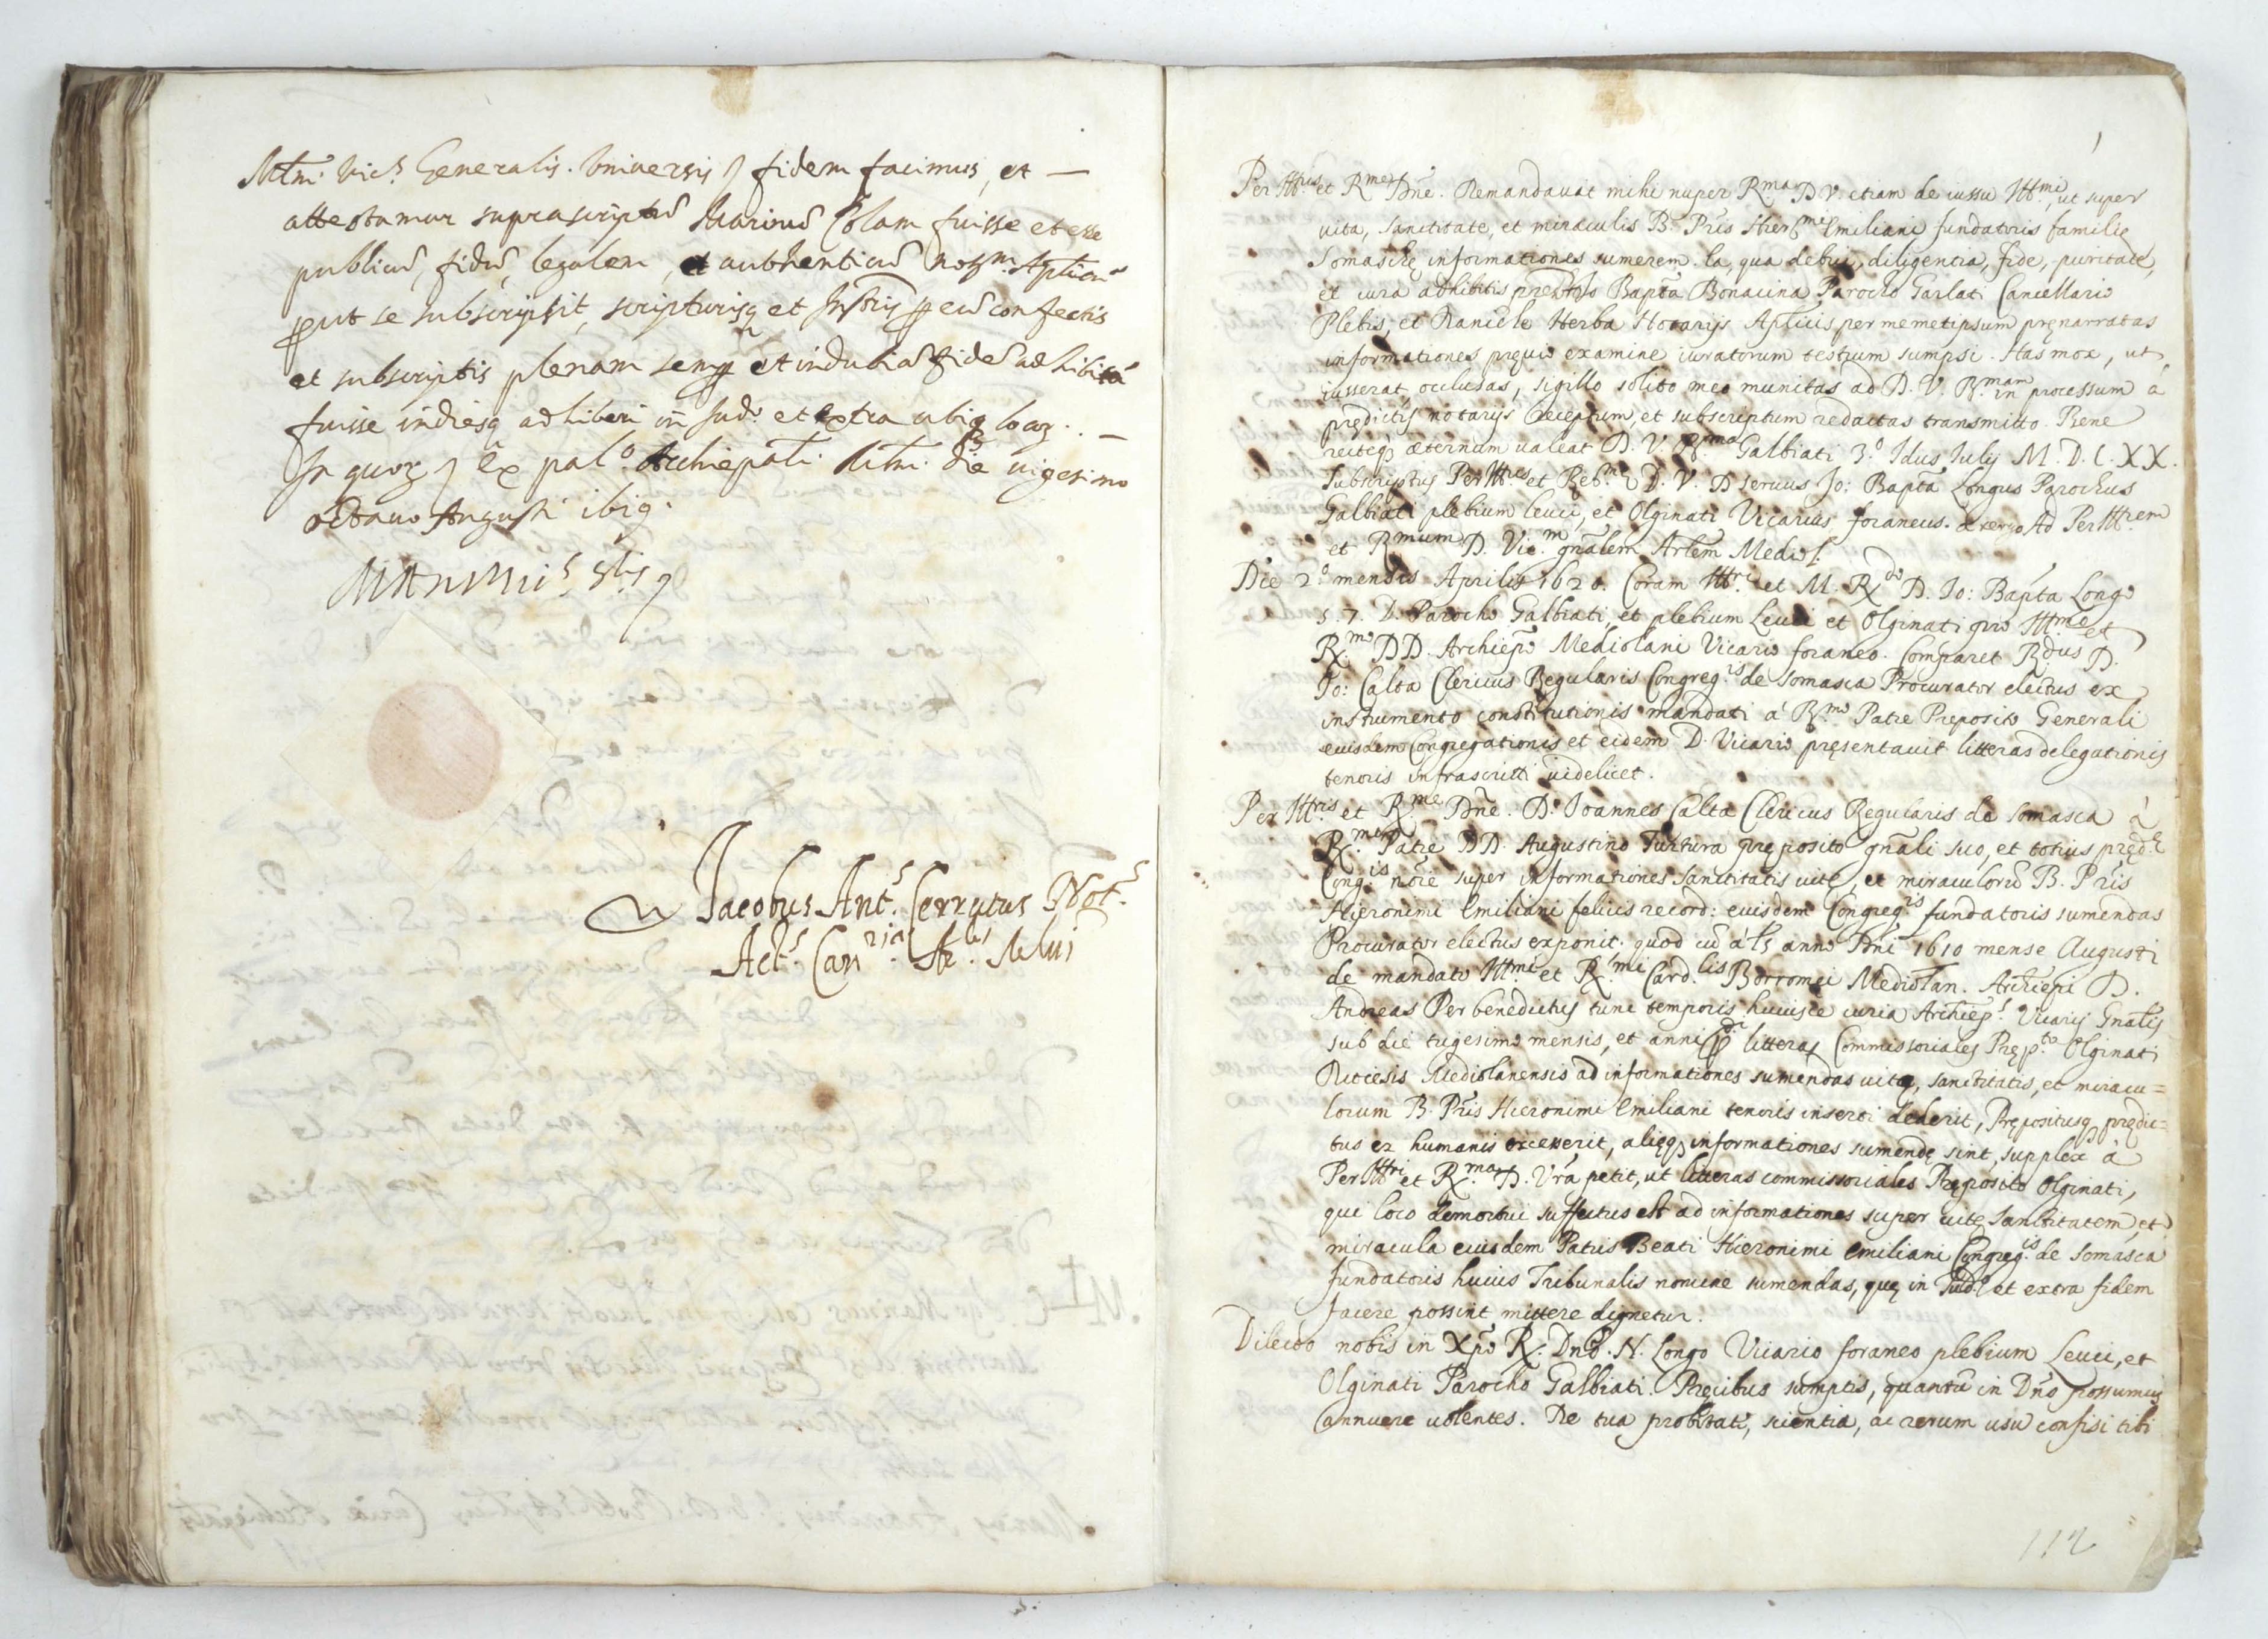 Mlni. Vic.s Generalis. Vniversis fidem facimus, et —
attestamur suprascriptũ Marcum Colam fuisse et esse
publicũ, fidũ, legalem, et authenticũ not.m Aplicum
put se subscripsit, scripturisq et Instris p eũ confectis
et subscriptis plenam semp et indubiã fidẽ adhibitã
fuisse indiesq adhiberi in Iud.o et extra ubiq locor. —
In quor Ex pal.o Archiepali Mlni. die vigesimo
octavo Augusti ibiq.
Iacobus Ant.s Cerrutus Not.s
Act.s Can.ria Ar.lis Mlni
1
Per Ill.ris et R.me Dñe. Remandavat mihi nuper R.ma D. V. etiam de iussu Ill.mi, ut super
vita, sanctitate, et miraculis B. Pris Hier.mi Emiliani fundatoris familię
Somaschę informationes sumerem. Ea, qua debui, diligentia, fide, puritate,
et cura adhibitis pręsb.o Io Bapta Bonacina Parocho Garlati Cancellario
Plebis, et Daniele Herba Notarijs Aplicis per memetipsum pręnarratas
informationes pręvio examine iuratorum testium sumpsi. Has mox, ut
iusserat occlusas, sigillo solito meo munitas ad D. V. R.mam in processum à
prędictis notarijs receptum, et subscriptum redactas transmitto. Bene
recteq; æternum valeat D. V. R.ma Galbiati 3.o Idus Iulij M. D. C. XX.
Subscriptus Per Ill.ris et Reb.me D. V. D servus Io: Bapta Longus Parochus
Galbiati plebium Leuci, et Olginati Vicarius foraneus. à tergo Ad Per Ill.rem
et R.mum D. Vic.m gñalem Arlem Mediol.
Die 2.o mensis Aprilis 1620. Coram Ill.ri et M. R.do D. Io: Bapta Longo
S. T. D. Parocho Galbiati, et plebium Leuci et Olginati pro Ill.mo et
R.mo DD. Archiepo Mediolani Vicario foraneo. Comparet R.dus D.
Io: Calta Clericus Regularis Congreg.is de Somasca Procurator electus ex
instrumento constitutionis mandati à R.mo Patre Preposito Generali
eiusdem Congregationis et eidem D. Vicario pręsentavit litteras delegationis
tenoris infrascritti videlicet.
Per Ill.ris et R.me Dñe. D. Ioannes Calta Clericus Regularis de Somasca à
R.mo Patre DD. Augustino Turtura pręposito gñali suo, et totius pręd.ę
Cong.is noie super informationes sanctitatis vitę, et miraculorũ B. Pris
Hieronimi Emiliani felicis record: eiusdem Congreg.is fundatoris sumendas
Procurator electus exponit. quod cũ àls anno Dñi 1610 mense Augusti
de mandato Ill.mi et R.mi Card.lis Borromei Mediolan. Archiepi D.
Andreas Perbenedictus tunc temporis huiusce curia Archiep.s Vicarij Gnalis
sub die trigesimo mensis, et anni litteras Commissoriales Pręp.to Olginati
Diecesis Mediolanensis ad informationes sumendas vitę, sanctitatis, et miracu=
lorum B. Pris Hieronimi Emiliani tenoris inserti dederit, Prępositusq prędic=
tus ex humanis excesserit, alięq; informationes sumendę sint, supplex à
Per Ill.ri et R.ma D. Vra petit, ut litteras commissoriales Pręposito Olginati,
qui loco demortui suffectus est ad informationes super vitę sanctitatem, et
miracula eiusdem Patris Beati Hieronimi Emiliani Congreg.is de Somasca
fundatoris huius Tribunalis nomine sumendas, quę in Iud.o et extra fidem
facere possint mittere dignetur.
Dilecto nobis in Xpo R. Dno. N. Longo Vicario foraneo plebium Leuci, et
Olginati Parocho Galbiati. Pręcibus sumptis, quantũ in Dño possumus
annuere volentes. De tua probitate, scientia, ac rerum usu confisi tibi
112